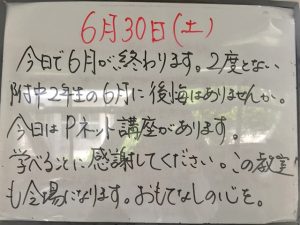 6月30日(土)
今日で6月が終わります。2度とない
附中2年生の6月に後悔はありませんか。
今日はPネット講座があります。
学べることに感謝してください。この教室
も会場になります。おもてなしの心を。